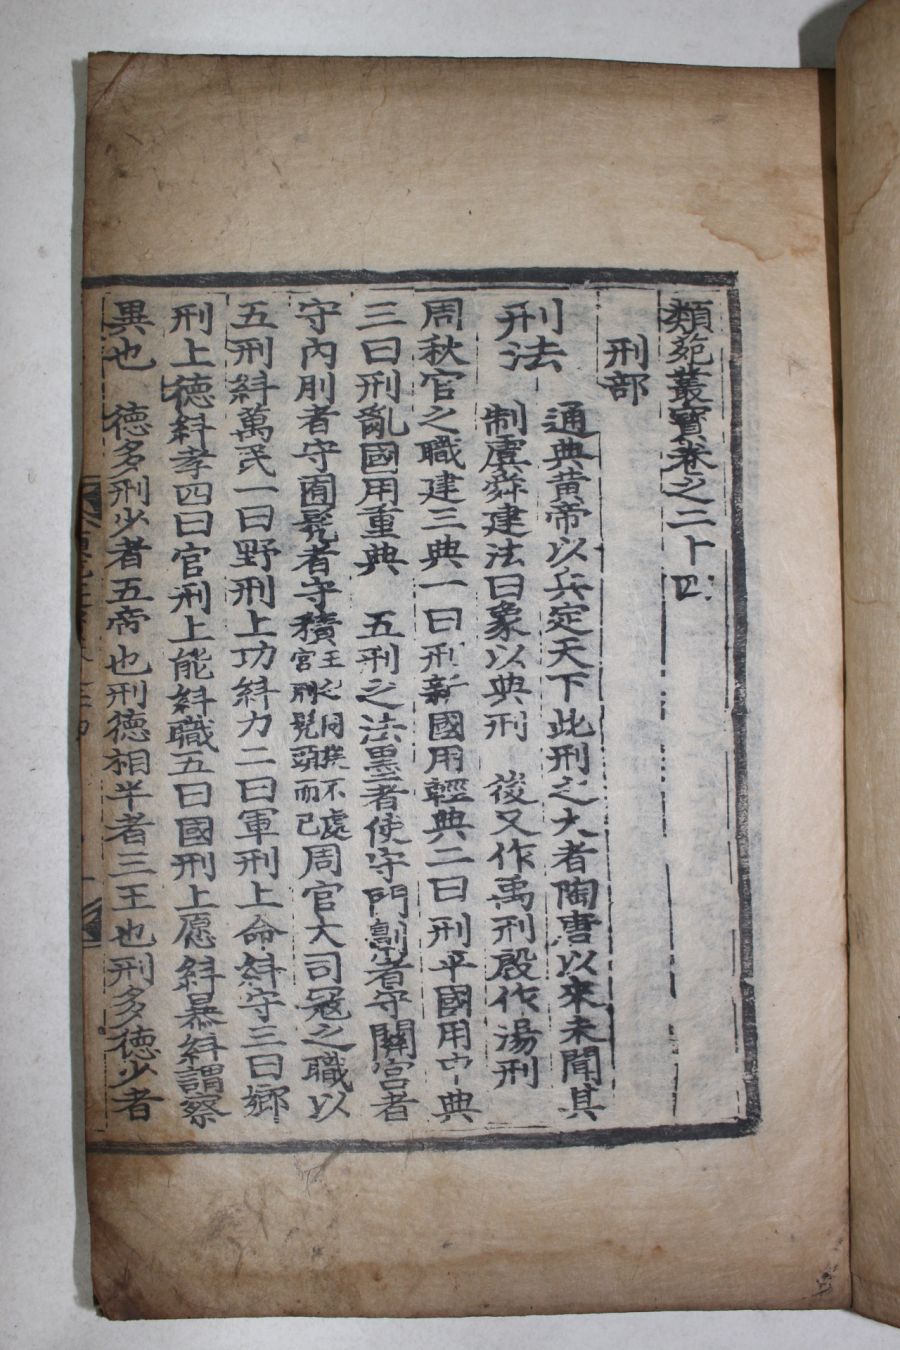 類苑叢寶卷之二十四
刑部
刑法
通典黃帝以兵定天下此刑之大者陶唐以來未聞其
制虞舜建法曰象以典刑 後又作禹刑殷作湯刑
周秋官之職建三典一曰刑新國用輕典二曰刑平國用中典
三曰刑亂國用重典 五刑之法墨者使守門劓者守關宮者
守內刖者守囿髡者守積王之同族不處宮刑髡頭而已周官大司寇之職以
五刑糾萬民一曰野刑上功糾力二曰軍刑上命糾守三曰鄉
刑上德糾孝四曰官刑上能糾職五曰國刑上愿糾暴糾謂察
異也 德多刑少者五帝也刑德相半者三王也刑多德少者